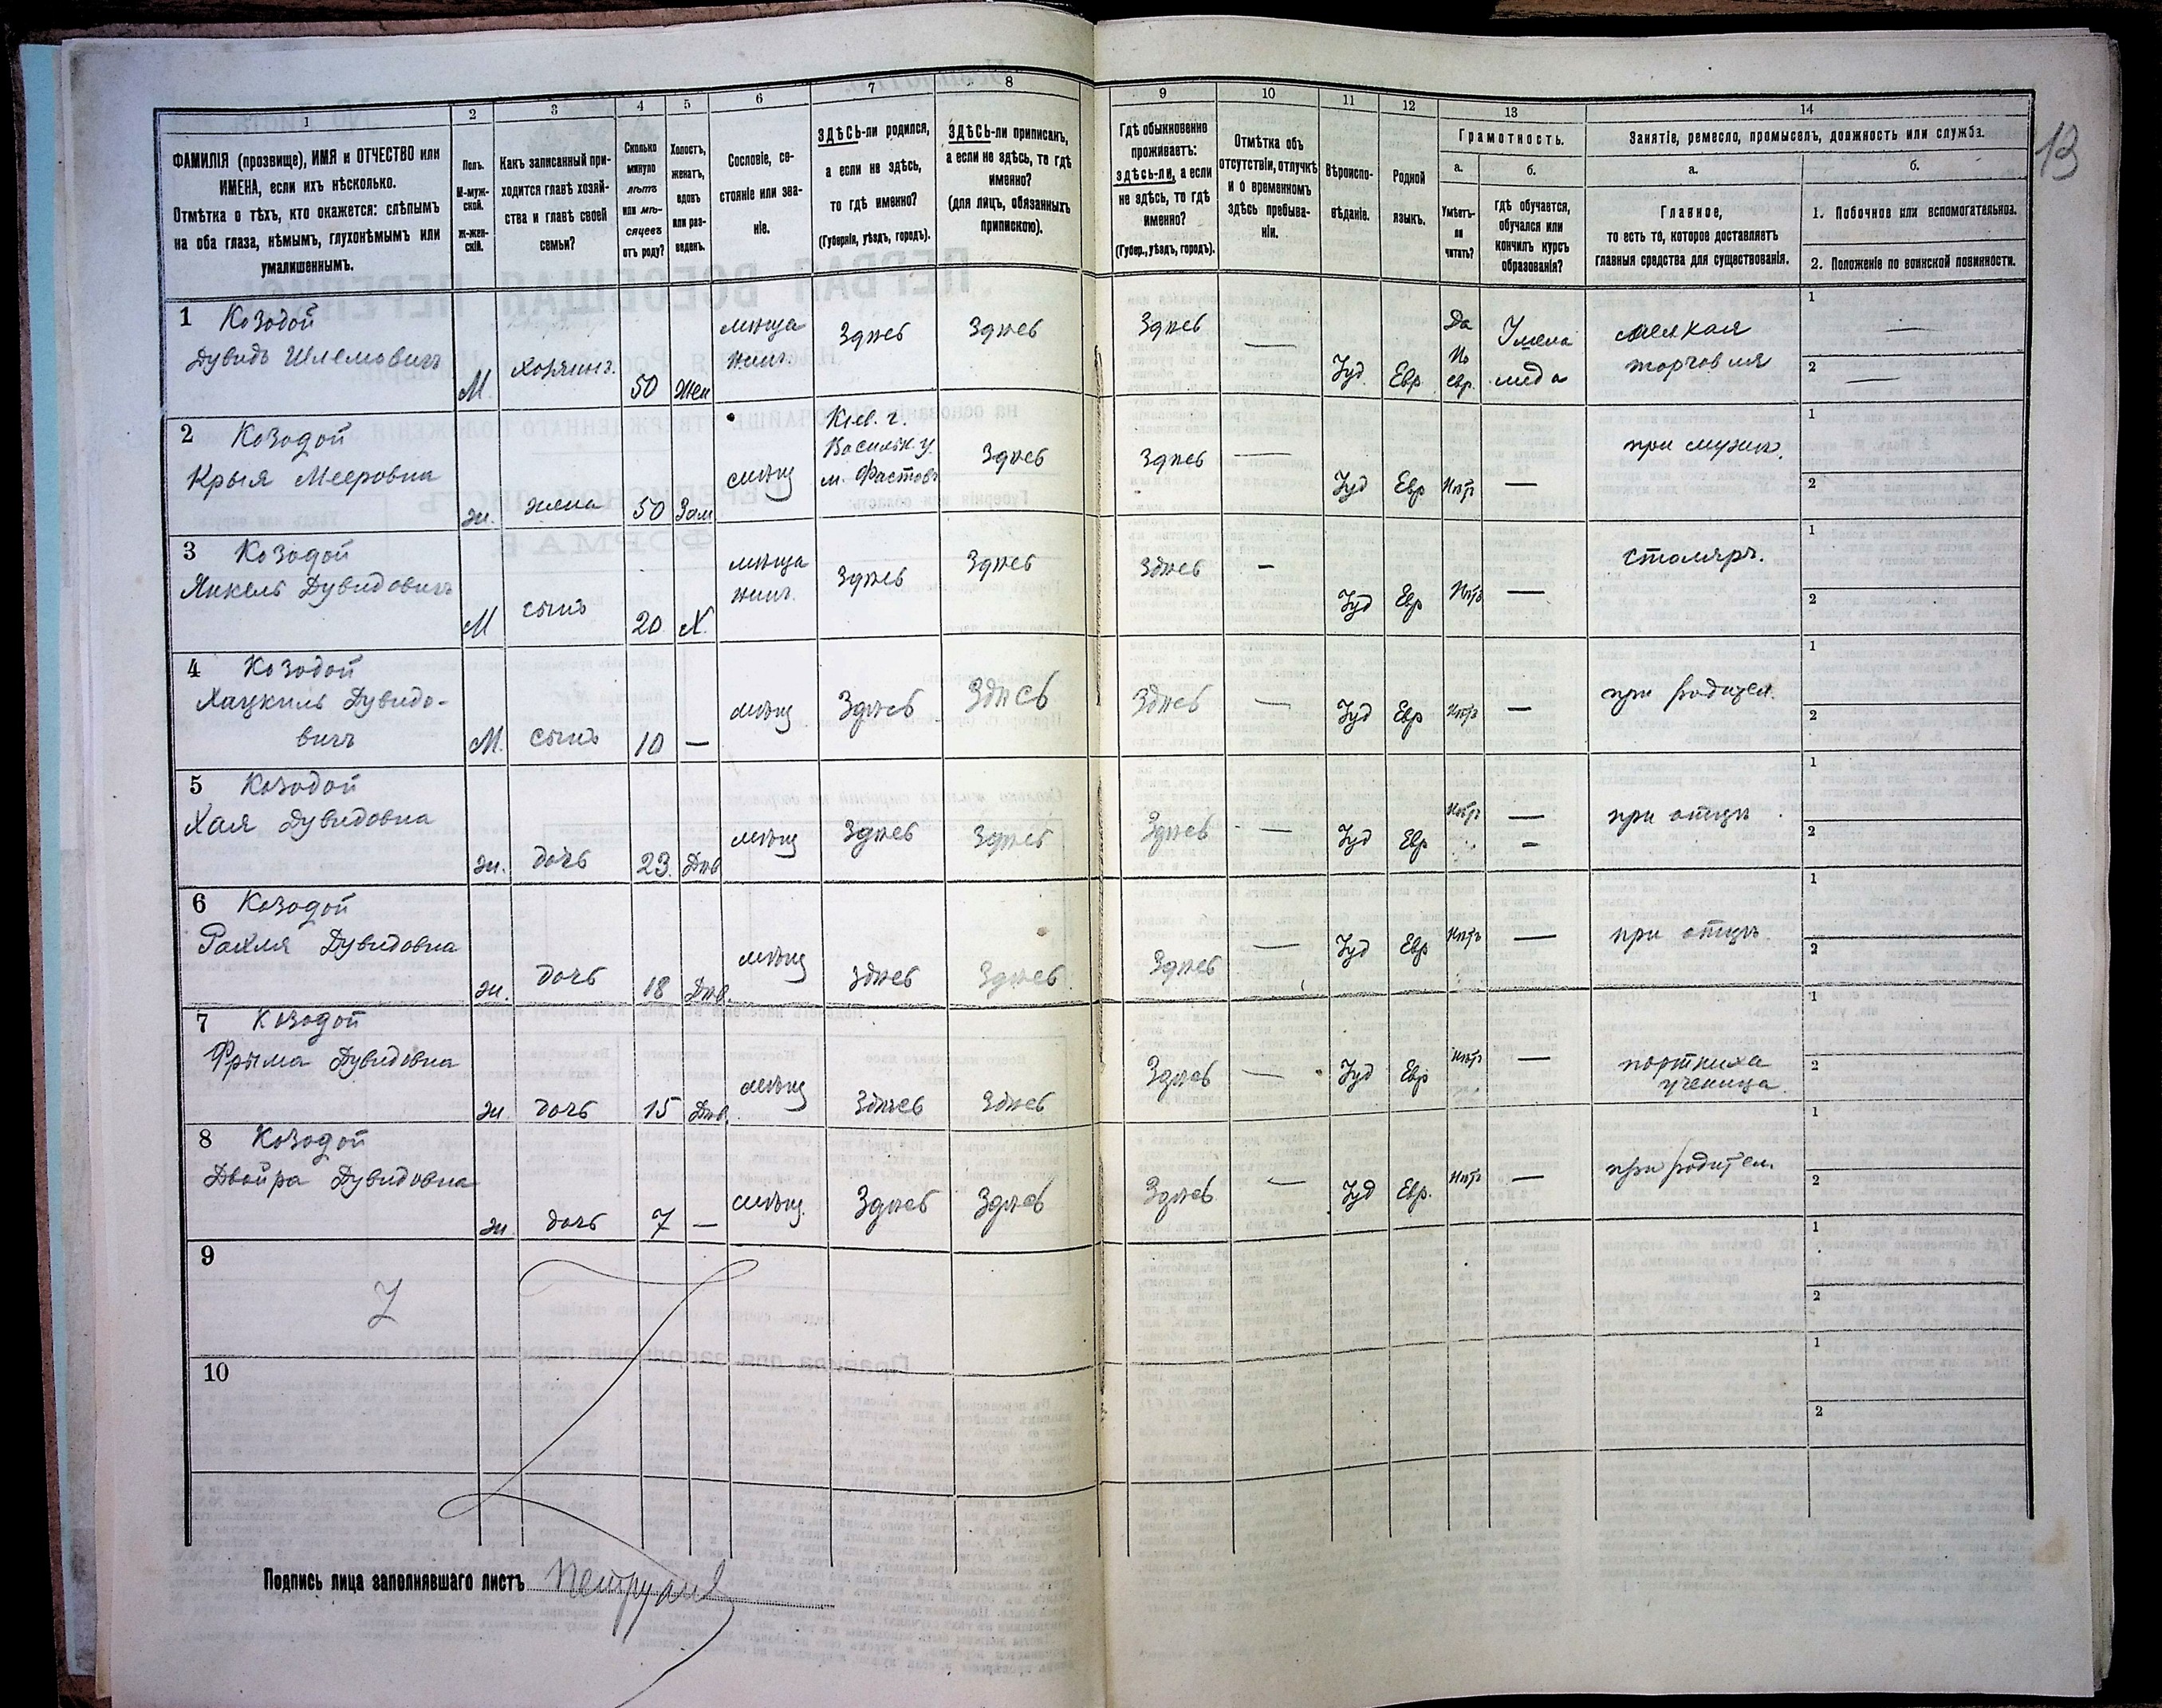 1
ФАМИЛІЯ (прозвище), ИМЯ и ОТЧЕСТВО или
ИМЕНА, если ихъ нѣсколько.
Отмѣтка о тѣхъ, кто окажется: слѣпымъ
на оба глаза, нѣмымъ, глухонѣмымъ или
умалишеннымъ.
2
Полъ.
М-муж-
ской.
Ж-жен-
скій.
3
Какъ записанный при-
ходится главѣ хозяй-
ства и главѣ своей
семьи?
4
Сколько
минуло
лѣтъ
или мѣ-
сяцевъ
отъ роду?
5
Холостъ,
женатъ,
вдовъ
или раз-
веденъ.
6
Сословіе, со-
стояніе или зва-
ніе.
7
ЗДѢСЬ-ли родился,
а если не здѣсь,
то гдѣ именно?
(Губернія, уѣздъ, городъ).
8
ЗДѢСЬ-ли приписанъ,
а если не здѣсь, то гдѣ
именно?
(для лицъ, обязанныхъ
припискою).
9
Гдѣ обыкновенно
проживаетъ:
здѣсь-ли, а если
не здѣсь, то гдѣ
именно?
(Губер., уѣздъ, городъ).
10
Отмѣтка объ
отсутствіи, отлучкѣ
и о временномъ
здѣсь пребыва-
ніи.
11
Вѣроиспо-
вѣданіе.
12
Родной
языкъ.
13
Грамотность.
а.
Умѣетъ-
ли
читать?
б.
гдѣ обучается,
обучался или
кончилъ курсъ
образованія?
14
Занятіе, ремесло, промыселъ, должность или служба.
а.
Главное,
то есть то, которое доставляетъ
главныя средства для существованія.
б.
1. Побочное или вспомогательное.
2. Положеніе по воинской повинности.
13
1 Козодой
Дувидъ Шлемовичъ
М. хозяинъ. 50 Жен
мѣща
нинъ.
Здѣсь Здѣсь Здѣсь — Іуд. Евр.
Да
По
евр.
У мела
меда
мелкая
торговля
1 —
2 —
2 Козодой
Крыя Мееровна
ж. жена 50 Зам мѣщ
Кіев. г.
Васильк. у.
м. Фастовъ
Здѣсь Здѣсь — Іуд Евр Нѣтъ —
при мужѣ.
1
2
3 Козодой
Янкель Дувидовичъ
М сынъ 20 Х.
мѣща
нинъ.
Здѣсь Здѣсь Здѣсь — Іуд Евр Нѣтъ —
столяръ.
1
2
4 Козодой
Хацкель Дувидо-
вичъ
М. сынъ 10 — мѣщ Здѣсь Здѣсь Здѣсь — Іуд Евр Нѣтъ —
при родител.
1
2
5 Козодой
Хая Дувидовна
ж. дочь 23. Дѣв мѣщ Здѣсь Здѣсь Здѣсь — Іуд Евр Нѣтъ —
при отцѣ
1
2
6 Козодой
Рахля Дувидовна
ж. дочь 18 Дѣв. мѣщ Здѣсь Здѣсь Здѣсь — Іуд Евр Нѣтъ —
при отцѣ
1
2
7 Козодой
Фрыма Дувидовна
ж. дочь 15 Дѣв. мѣщ Здѣсь Здѣсь Здѣсь — Іуд Евр Нѣтъ —
портниха
ученица
1
2
8 Козодой
Двойра Дувидовна
ж. дочь 7 — мѣщ. Здѣсь Здѣсь Здѣсь — Іуд Евр. Нѣтъ —
при родител.
1
2
9
1
2
10
1
2
Подпись лица заполнявшаго листъ